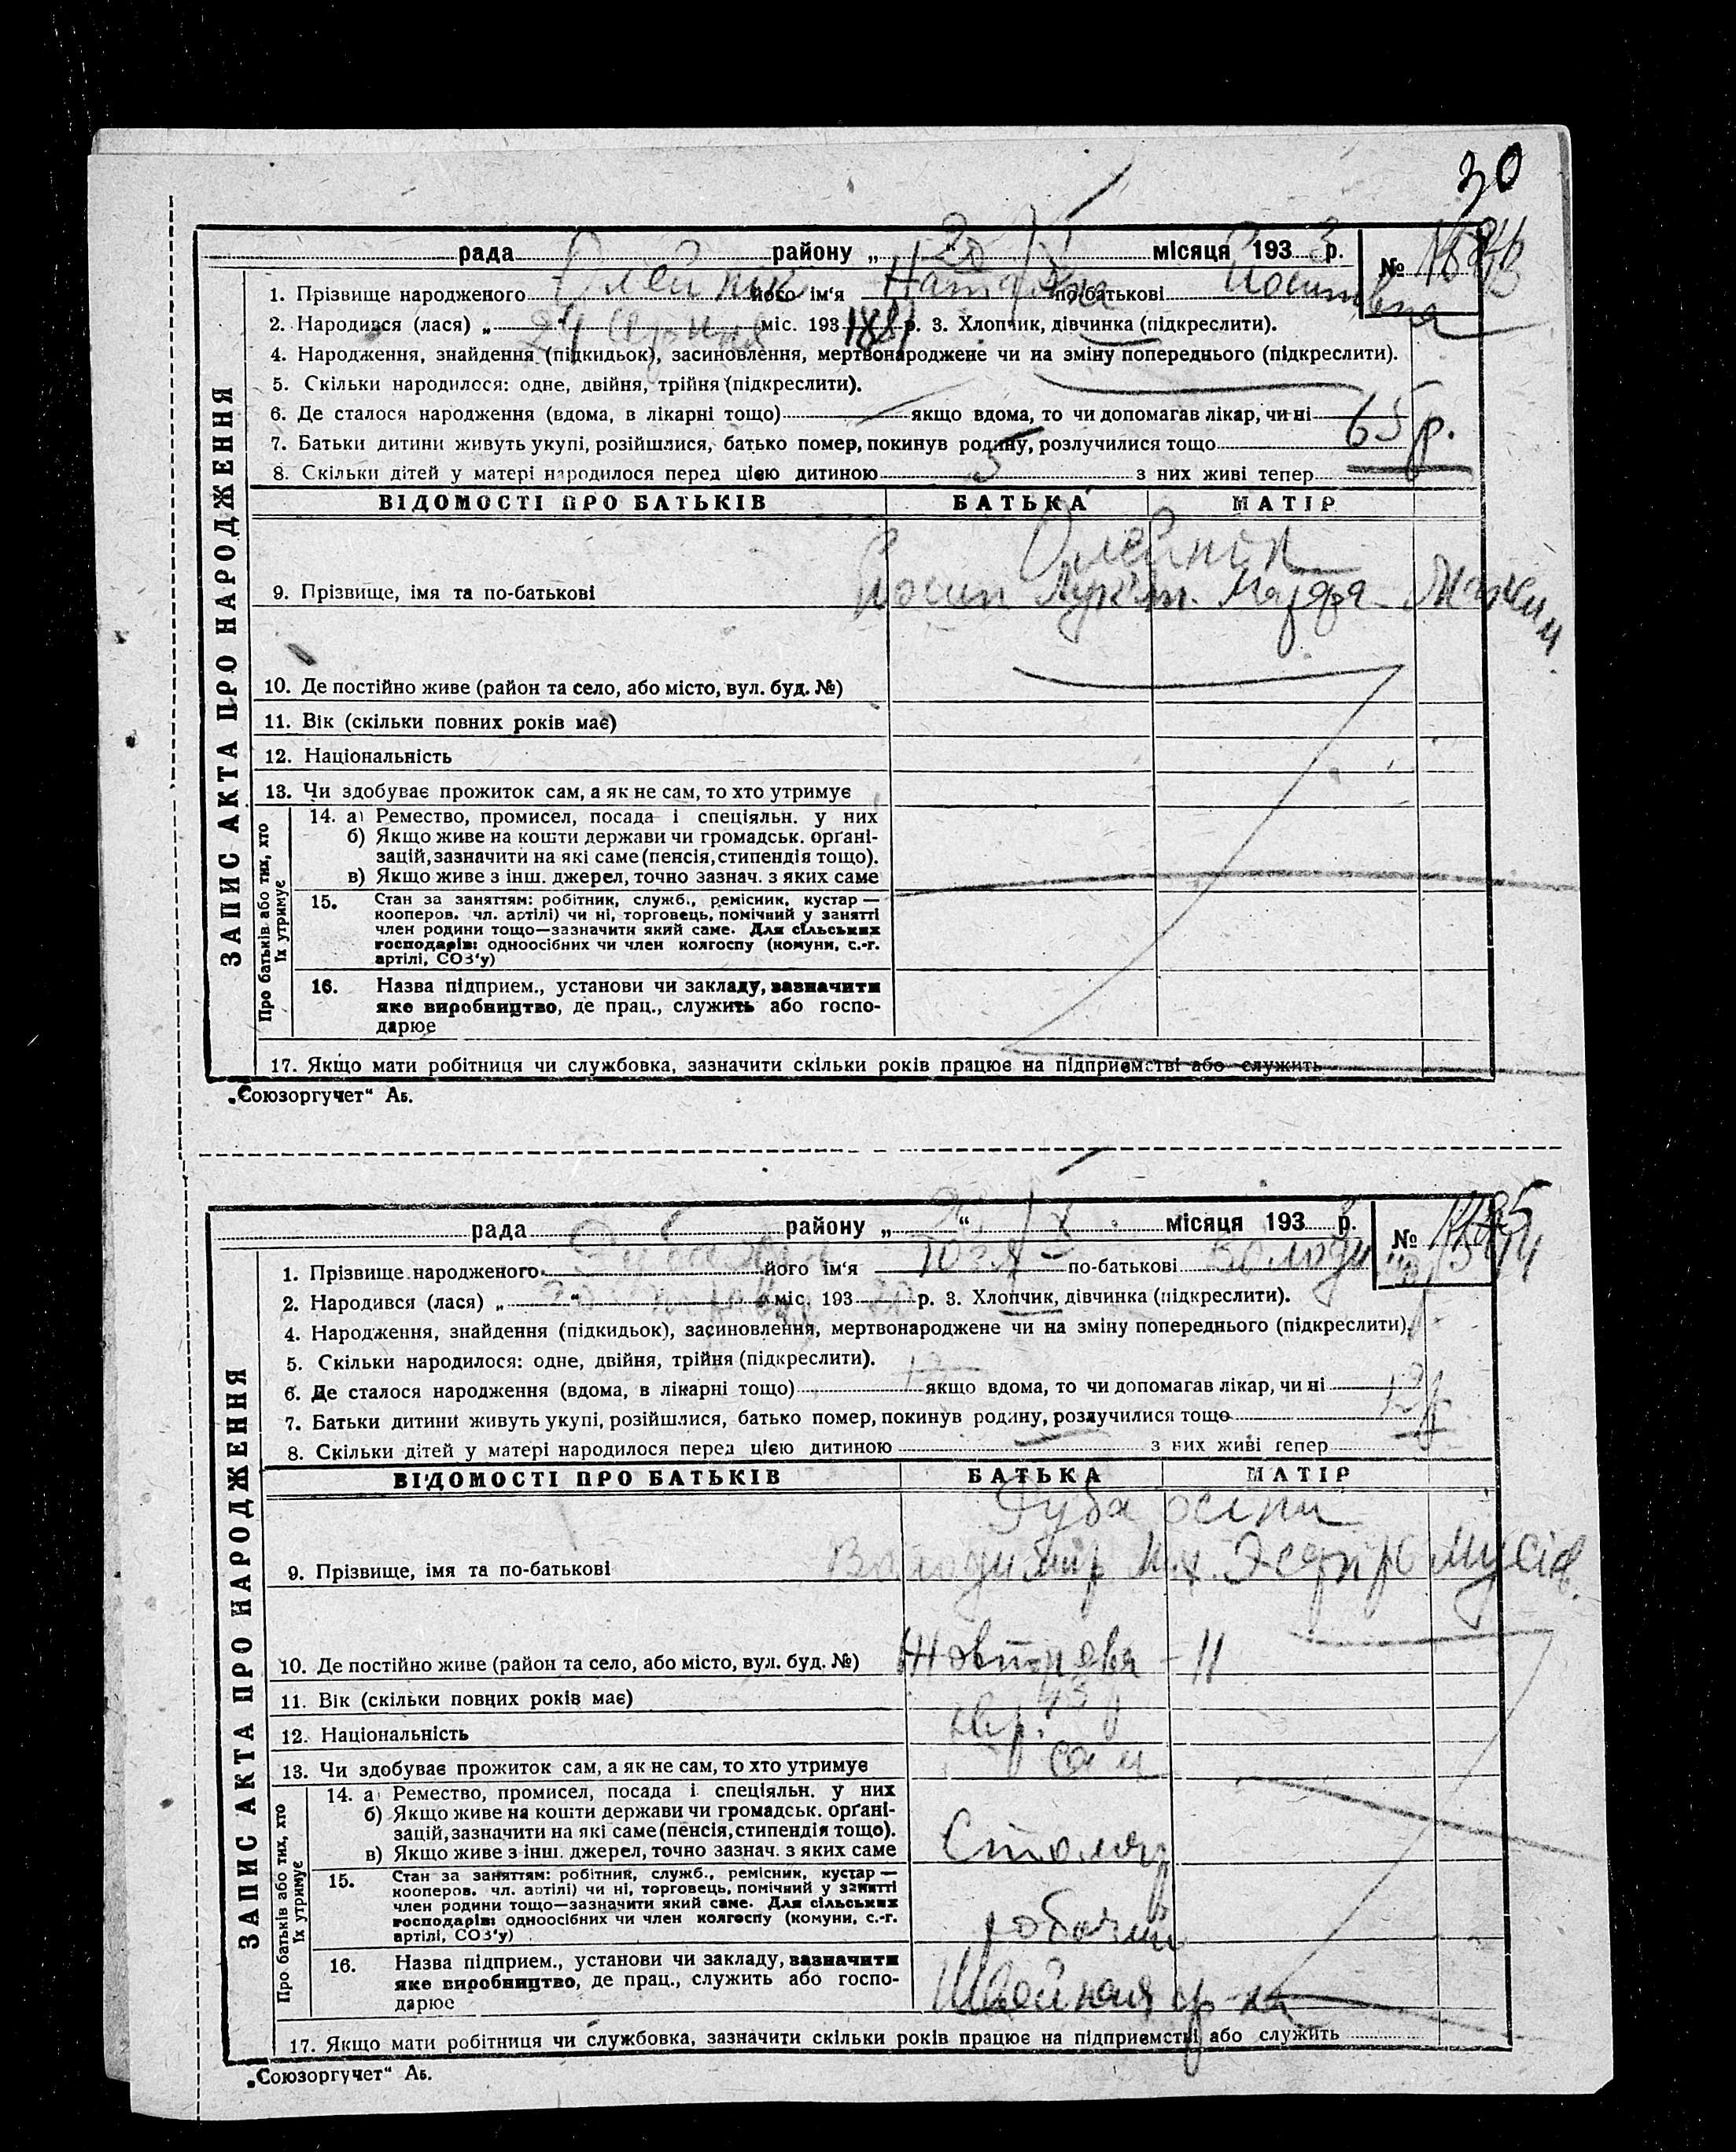 30
рада Олейник району „ 20 “ IX місяця 193 3 р. №
1. Прізвище народженого його ім‘я Наталка по-батькові Йосипівна
2. Народився (лася) „ 24 “ Серпня міс. 193 р. 3. Хлопчик, дівчинка (підкреслити).
4. Народження, знайдення (підкидьок), засиновлення, мертвонароджене чи на зміну попереднього (підкреслити).
5. Скільки народилося: одне, двійня, трійня (підкреслити).
6. Де сталося народження (вдома, в лікарні тощо) якщо вдома, то чи допомагав лікар, чи ні
65 р.
7. Батьки дитини живуть укупі, розійшлися, батько помер, покинув родину, розлучилися тощо
8. Скільки дітей у матері народилося перед цією дитиною 5 з них живі тепер
ЗАПИС АКТА ПРО НАРОДЖЕННЯ
ВІДОМОСТІ ПРО БАТЬКІВ БАТЬКА МАТІР
Олейник
9. Прізвище, імя та по-батькові Йосип Лук'ян. Марфа
10. Де постійно живе (район та село, або місто, вул. буд. №)
11. Вік (скільки повних років має)
12. Національність
13. Чи здобуває прожиток сам, а як не сам, то хто утримує
Про батьків або тих, хто
їх утримує
14. а) Ремество, промисел, посада і спеціяльн. у них
б) Якщо живе на кошти держави чи громадськ. орґані-
зацій, зазначити на які саме (пенсія, стипендія тощо).
в) Якщо живе з інш. джерел, точно зазнач. з яких саме
15. Стан за заняттям: робітник, служб., ремісник, кустар —
кооперов. чл. артілі) чи ні, торговець, помічний у занятті
член родини тощо—зазначити який саме. Для сільських
господарів: одноосібних чи член колгоспу (комуни, с.-г.
артілі, СОЗ‘у)
16. Назва підприєм., установи чи закладу, зазначити
яке виробництво, де прац., служить або госпо-
дарює
17. Якщо мати робітниця чи службовка, зазначити скільки років працює на підприємстві або служить
„Союзоргучет“ Аб.
рада району „ “ IX місяця 193 3 р. №
1. Прізвище народженого його ім‘я Юзя по-батькові Володим
2. Народився (лася) „ “ міс. 193 р. 3. Хлопчик, дівчинка (підкреслити).
4. Народження, знайдення (підкидьок), засиновлення, мертвонароджене чи на зміну попереднього (підкреслити).
5. Скільки народилося: одне, двійня, трійня (підкреслити).
6. Де сталося народження (вдома, в лікарні тощо) якщо вдома, то чи допомагав лікар, чи ні
7. Батьки дитини живуть укупі, розійшлися, батько помер, покинув родину, розлучилися тощо
8. Скільки дітей у матері народилося перед цією дитиною з них живі тепер
ЗАПИС АКТА ПРО НАРОДЖЕННЯ
ВІДОМОСТІ ПРО БАТЬКІВ БАТЬКА МАТІР
9. Прізвище, імя та по-батькові Володимир Эсфирь Мусієв.
10. Де постійно живе (район та село, або місто, вул. буд. №) Жовтнева - 11
11. Вік (скільки повних років має) 43
12. Національність євр.
13. Чи здобуває прожиток сам, а як не сам, то хто утримує сам
Про батьків або тих, хто
їх утримує
14. а) Ремество, промисел, посада і спеціяльн. у них
б) Якщо живе на кошти держави чи громадськ. орґані-
зацій, зазначити на які саме (пенсія, стипендія тощо). Столяр
в) Якщо живе з інш. джерел, точно зазнач. з яких саме
15. Стан за заняттям: робітник, служб., ремісник, кустар —
кооперов. чл. артілі) чи ні, торговець, помічний у занятті
член родини тощо—зазначити який саме. Для сільських
господарів: одноосібних чи член колгоспу (комуни, с.-г. робочий
артілі, СОЗ‘у)
16. Назва підприєм., установи чи закладу, зазначити
яке виробництво, де прац., служить або госпо- Швейная ф-ка
дарює
17. Якщо мати робітниця чи службовка, зазначити скільки років працює на підприємстві або служить
„Союзоргучет“ Аб.